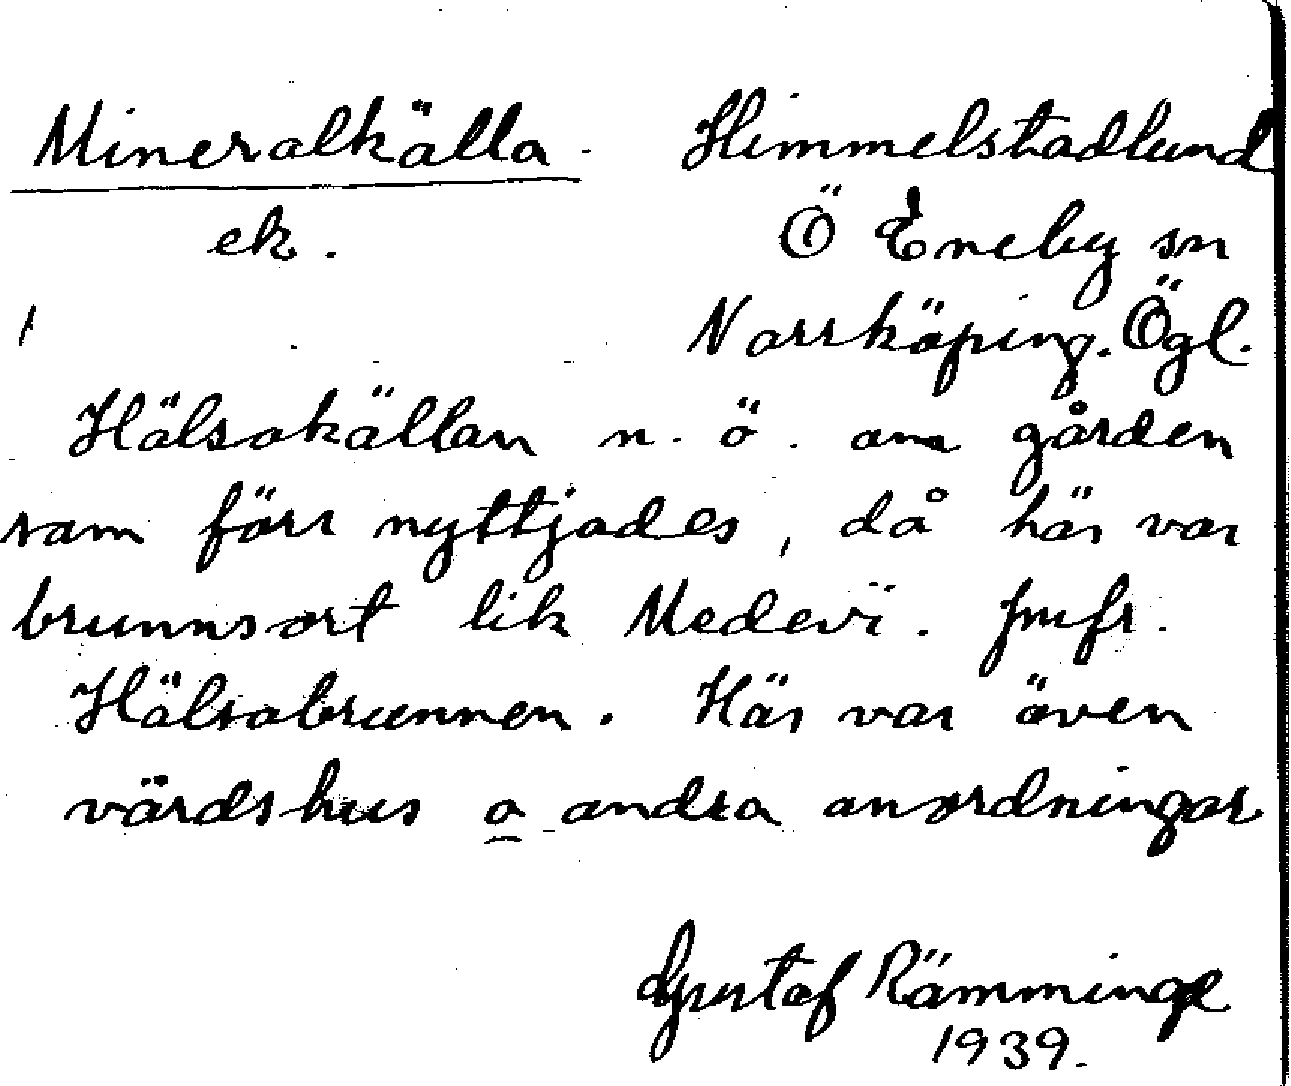 Mineralkälla - Himmelstadlund
ek. Ö Eneby sn
Norrköping. Ögl.
Hälsokällan n. ö. om gården
som förr nyttjades, då här var
brunnsort lik Medevi. Jmfr.
Hälsobrunnen. Här var även
värdshus o andra anordningar
Gustaf Rämminge
1939.